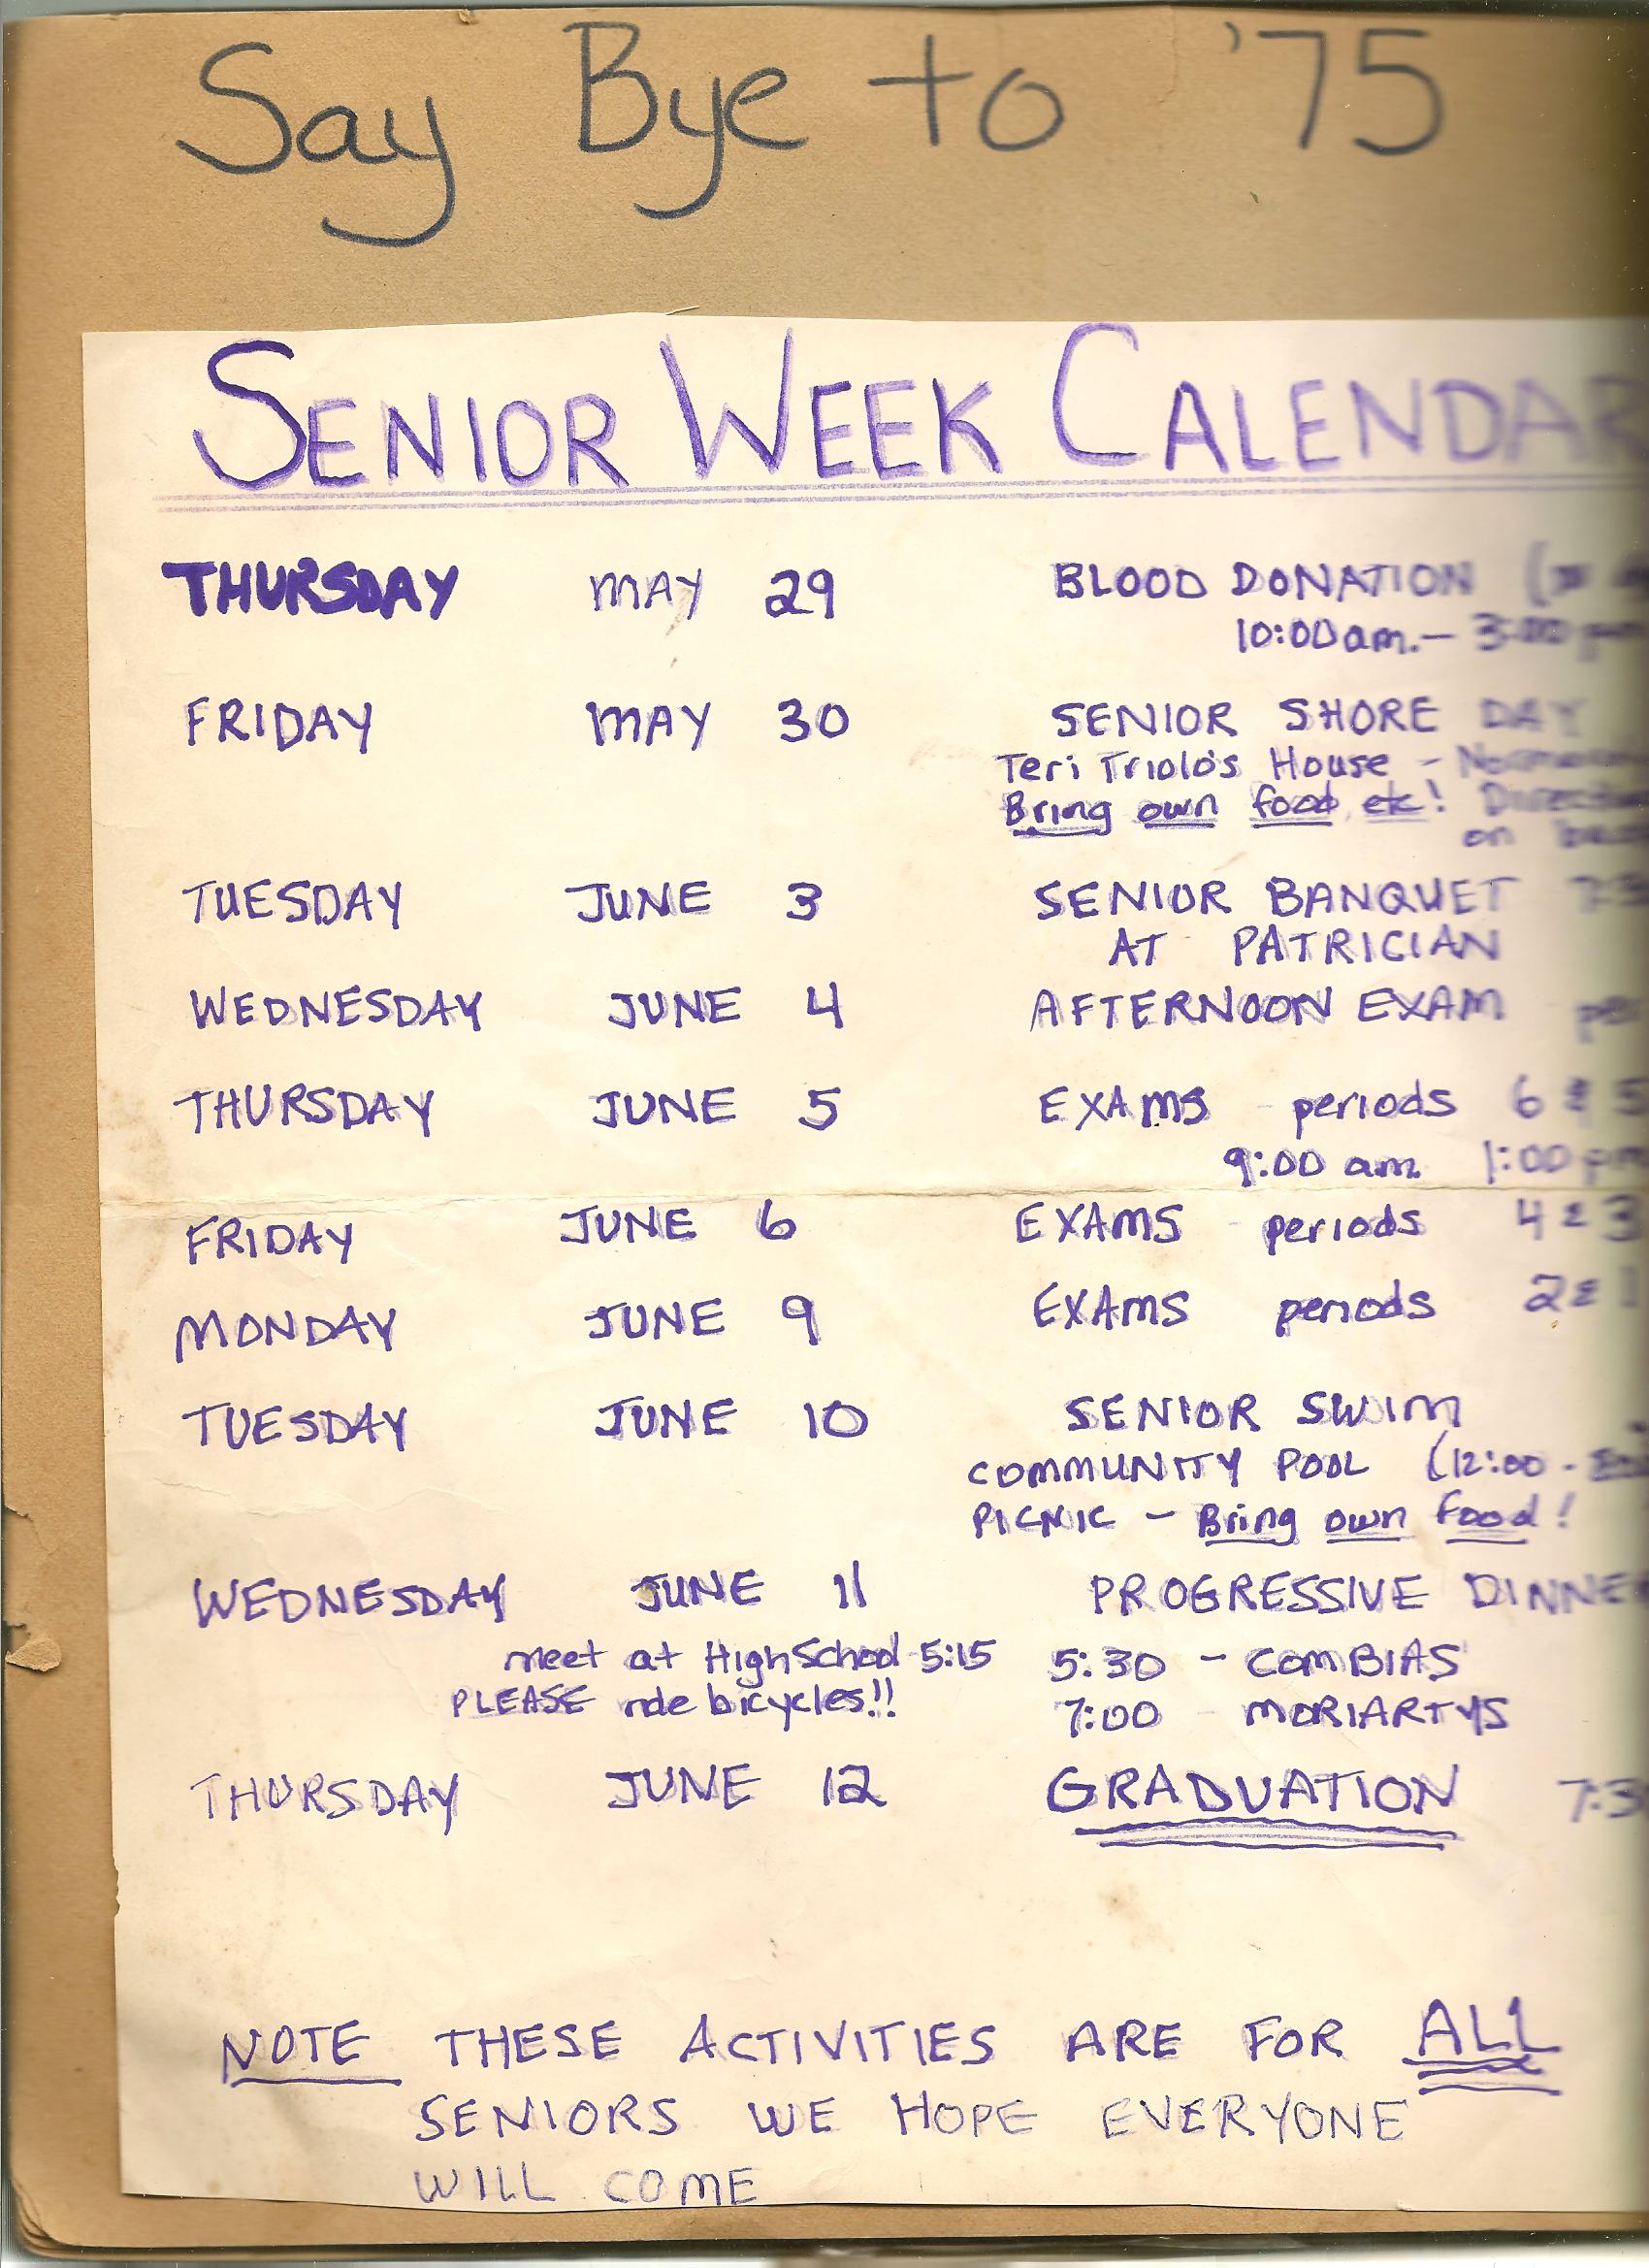 Say Bye to '75
SENIOR WEEK CALENDAR
THURSDAY MAY 29 BLOOD DONATION
10:00 am. - 3:00 pm
FRIDAY MAY 30 SENIOR SHORE DAY
Teri Triolo's House -
Bring own food, etc!
on
TUESDAY JUNE 3 SENIOR BANQUET
AT PATRICIAN
WEDNESDAY JUNE 4 AFTERNOON EXAM
THURSDAY JUNE 5 EXAMS - periods 6 & 5
9:00 am. 1:00 pm
FRIDAY JUNE 6 EXAMS - periods 4 & 3
MONDAY JUNE 9 EXAMS periods 2 & 1
TUESDAY JUNE 10 SENIOR SWIM
COMMUNITY POOL (12:00 -
PICNIC - Bring own food!
WEDNESDAY JUNE 11 PROGRESSIVE DINNE
meet at High School 5:15 5:30 - COMBIAS
PLEASE ride bicycles!! 7:00 - MORIARTYS
THURSDAY JUNE 12 GRADUATION 7:3
NOTE THESE ACTIVITIES ARE FOR ALL
SENIORS WE HOPE EVERYONE
WILL COME